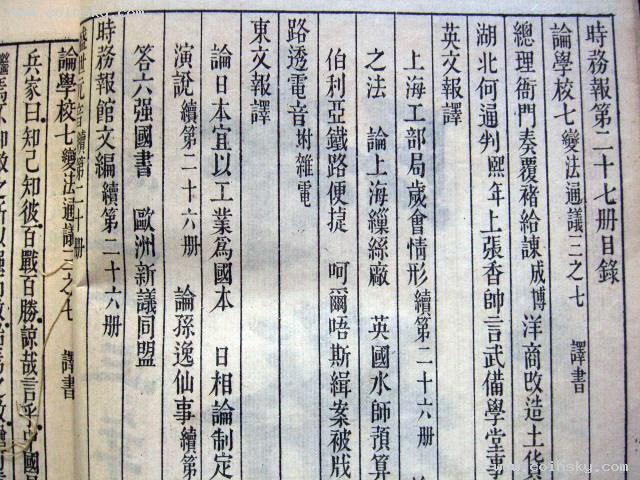 時務報第二十七册目錄
論學校七 變法通議三之七 譯書
總理衙門奏覆褚給諫成博洋商改造土貨
湖北何通判熙年上張香帥言武備學堂事
英文報譯
上海工部局歲會情形 續第二十六册 論
之法 論上海繅絲廠 英國水師預算
伯利亞鐵路便捷 呵爾唔斯緝案被戕
路透電音 附雜電
東文報譯
論日本宜以工業爲國本 日相論制定
演說 續第二十六册 論孫逸仙事 續第
答六强國書 歐洲新議同盟
時務報館文編 續第二十六册
盛世元音 續第二十册
論學校七 變法通議三之七 譯書
兵家曰知己知彼百戰百勝諒哉言乎中國
www.coinsky.com